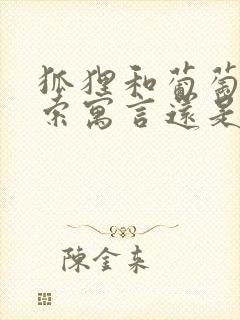 狐狸和葡萄
索寓言還是
陳金东